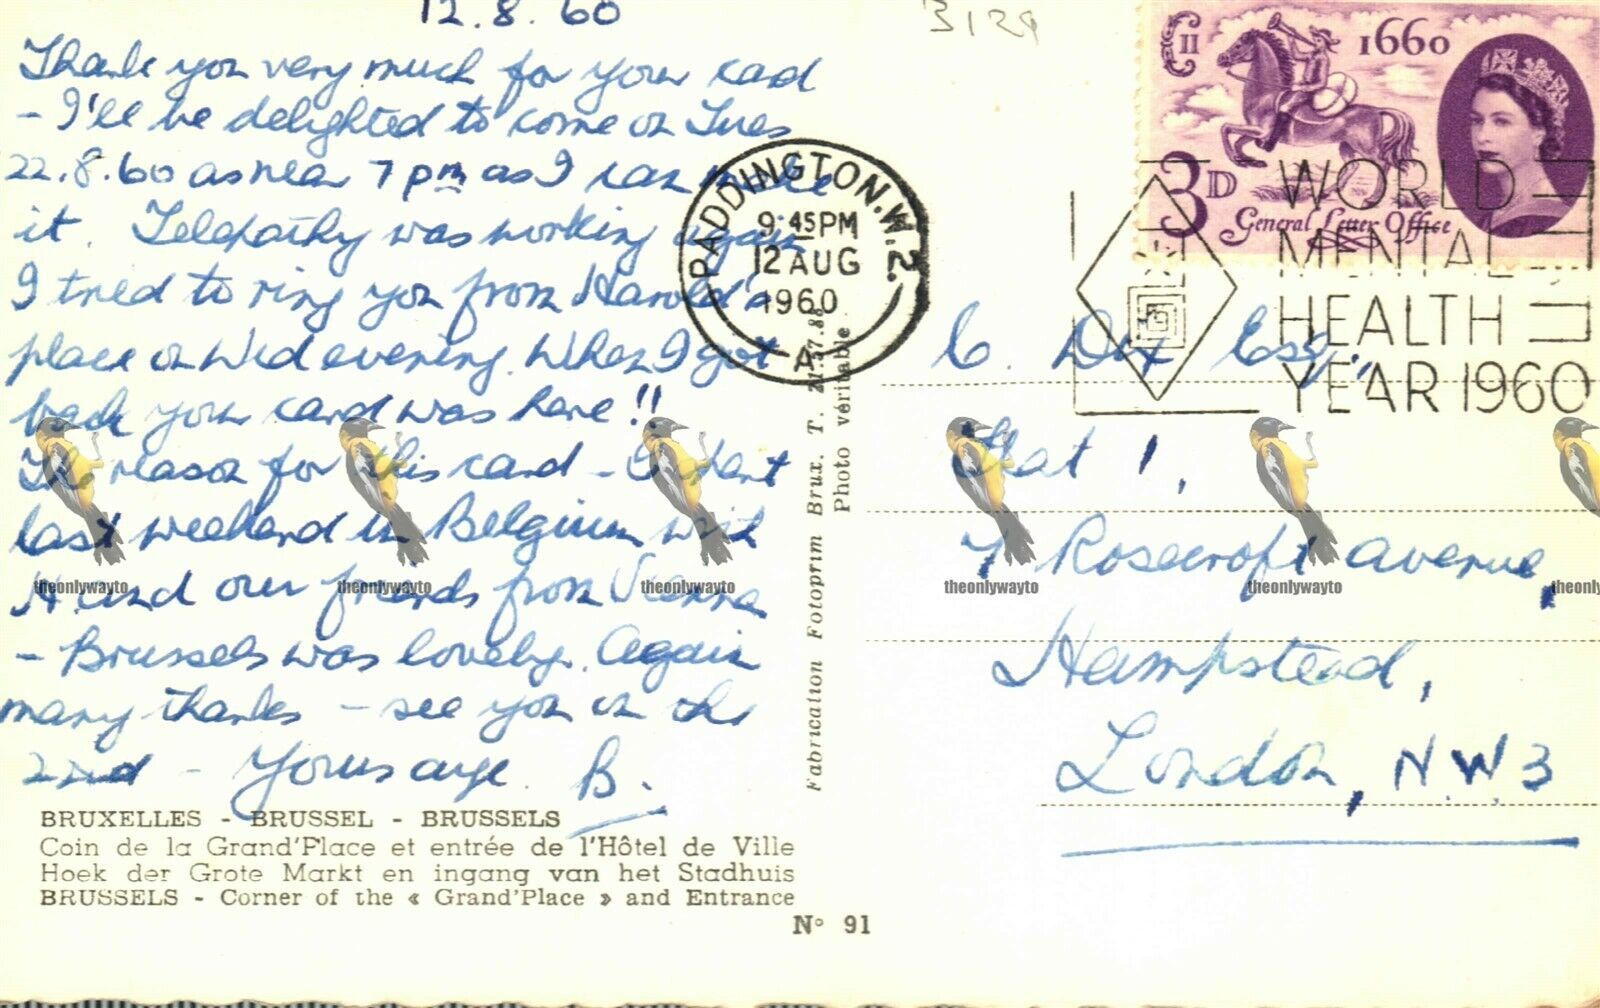 12.8.60
Thank you very much for your card
- I'll be delighted to come on Tues
22.8.60 as near 7pm as I can make
it. Telepathy was working again
I tried to ring you from Harold's
place on Wed evening. When I got
back your card was here!!
The reason for this card - I spent
last weekend in Belgium with
H. and our friends from Vienna
- Brussels was lovely. Again
many thanks - see you on the
22nd - Yours aye B.
BRUXELLES - BRUSSEL - BRUSSELS
Coin de la Grand'Place et entrée de l'Hôtel de Ville
Hoek der Grote Markt en ingang van het Stadhuis
BRUSSELS - Corner of the « Grand'Place » and Entrance
Nº 91
Fabrication Fotoprim Brux. T.
Photo véritable
3129
E II R
1660
3D
General Letter Office
PADDINGTON.W.2.
9 45PM
12 AUG
1960
A
WORLD
MENTAL
HEALTH
YEAR 1960
C. Dix Esq.,
Flat 1,
7 Rosecroft Avenue,
Hampstead,
London, N.W.3
theonlywayto
theonlywayto
theonlywayto
theonlywayto
theonlywayto
theonlywayto